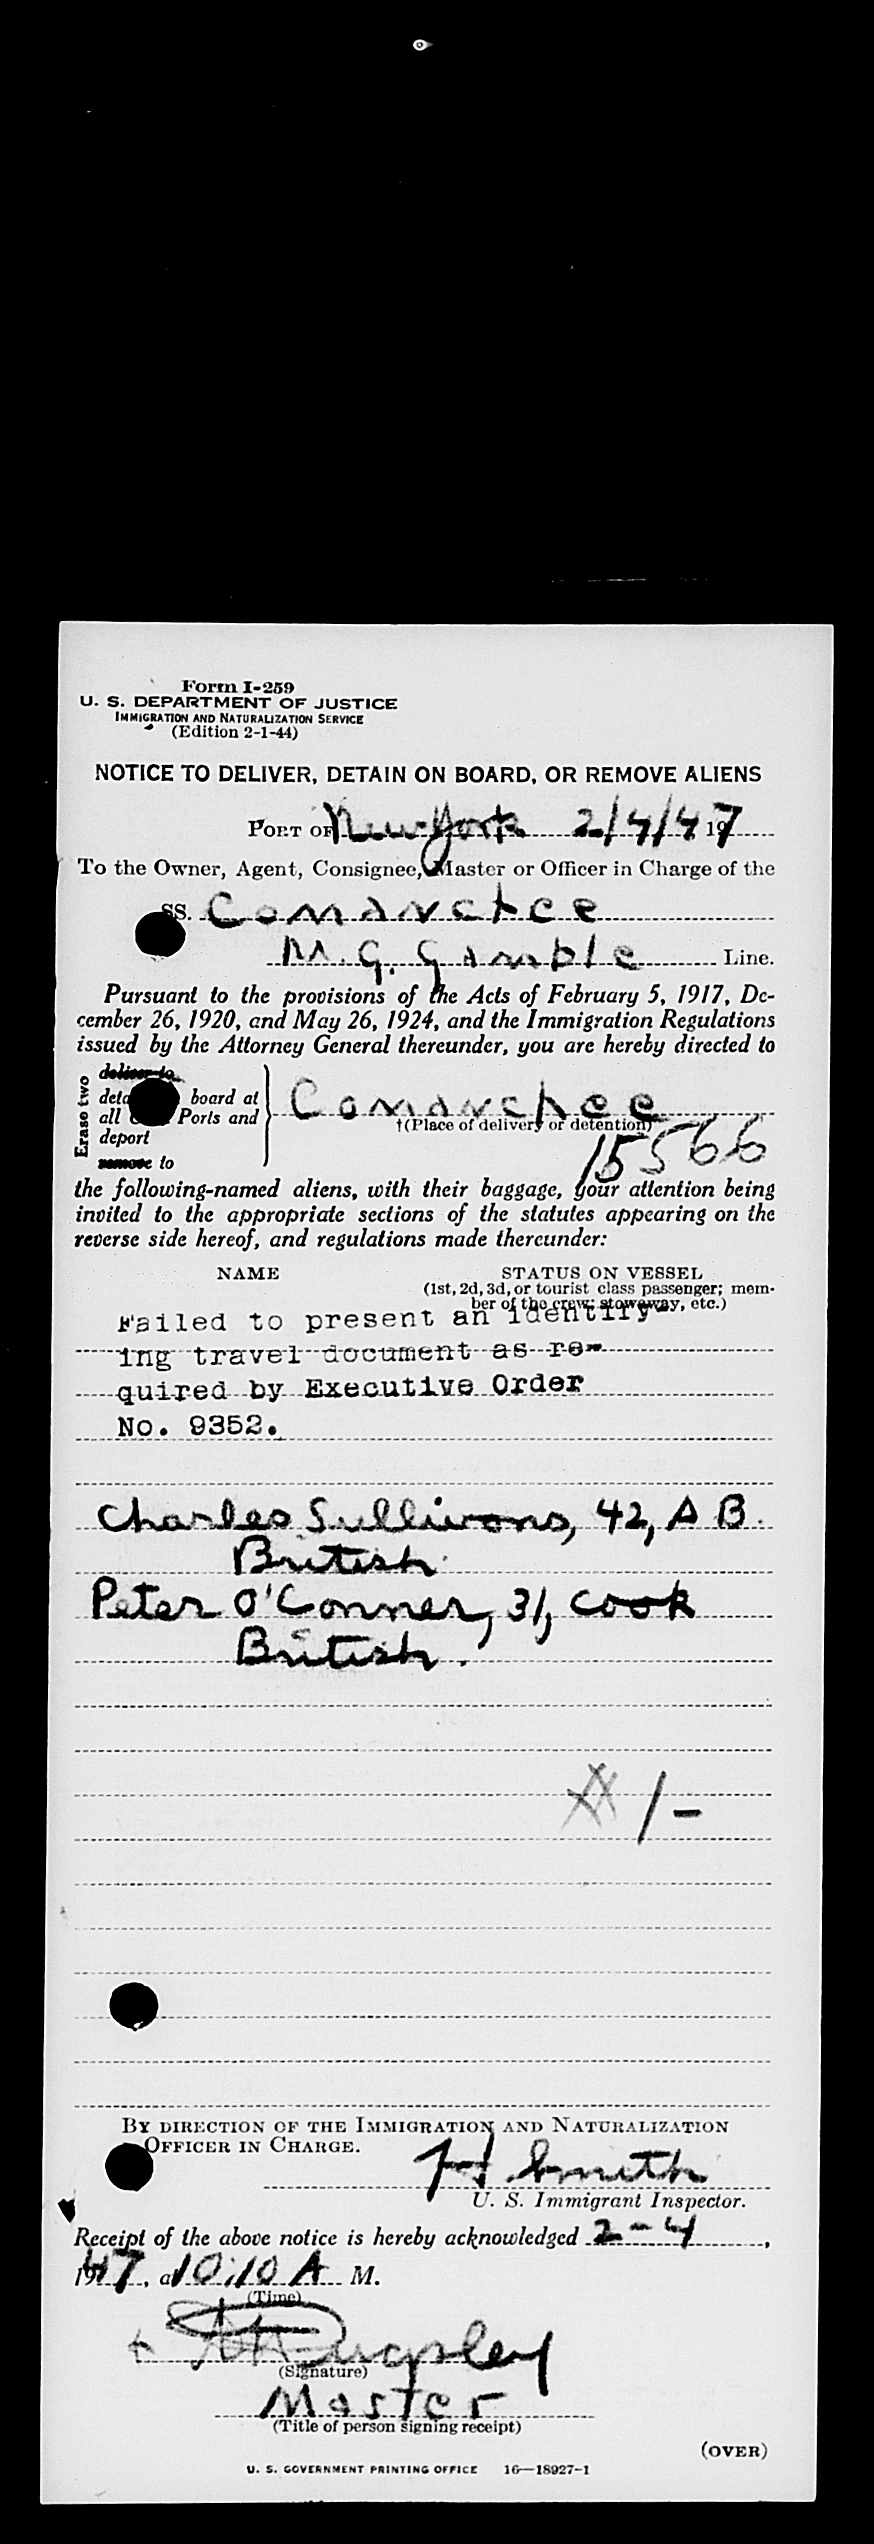 Form I-259
U. S. DEPARTMENT OF JUSTICE
IMMIGRATION AND NATURALIZATION SERVICE
(Edition 2-1-44)
NOTICE TO DELIVER, DETAIN ON BOARD, OR REMOVE ALIENS
PORT OF New York 2/4/47 19
To the Owner, Agent, Consignee, Master or Officer in Charge of the
SS. Comanchee
M. G. Gamble Line.
Pursuant to the provisions of the Acts of February 5, 1917, De-
cember 26, 1920, and May 26, 1924, and the Immigration Regulations
issued by the Attorney General thereunder, you are hereby directed to
Erase two
deliver to
board at
all Ports and Comanchee
deport †(Place of delivery or detention)
remove to 15566
the following-named aliens, with their baggage, your attention being
invited to the appropriate sections of the statutes appearing on the
reverse side hereof, and regulations made thereunder:
NAME STATUS ON VESSEL
(1st, 2d, 3d, or tourist class passenger; mem-
ber of the crew; stowaway, etc.)
Failed to present an identify-
ing travel document as re-
quired by Executive Order
No. 9352.
Charles Sullivans, 42, A B.
British
Peter O'Conner, 31, cook
British.
1-
BY DIRECTION OF THE IMMIGRATION AND NATURALIZATION
OFFICER IN CHARGE.
H Smith
U. S. Immigrant Inspector.
Receipt of the above notice is hereby acknowledged 2-4,
1947, at 10:10 A M.
(Time)
Pugsley
(Signature)
Master
(Title of person signing receipt)
(OVER)
U. S. GOVERNMENT PRINTING OFFICE 16—18927-1